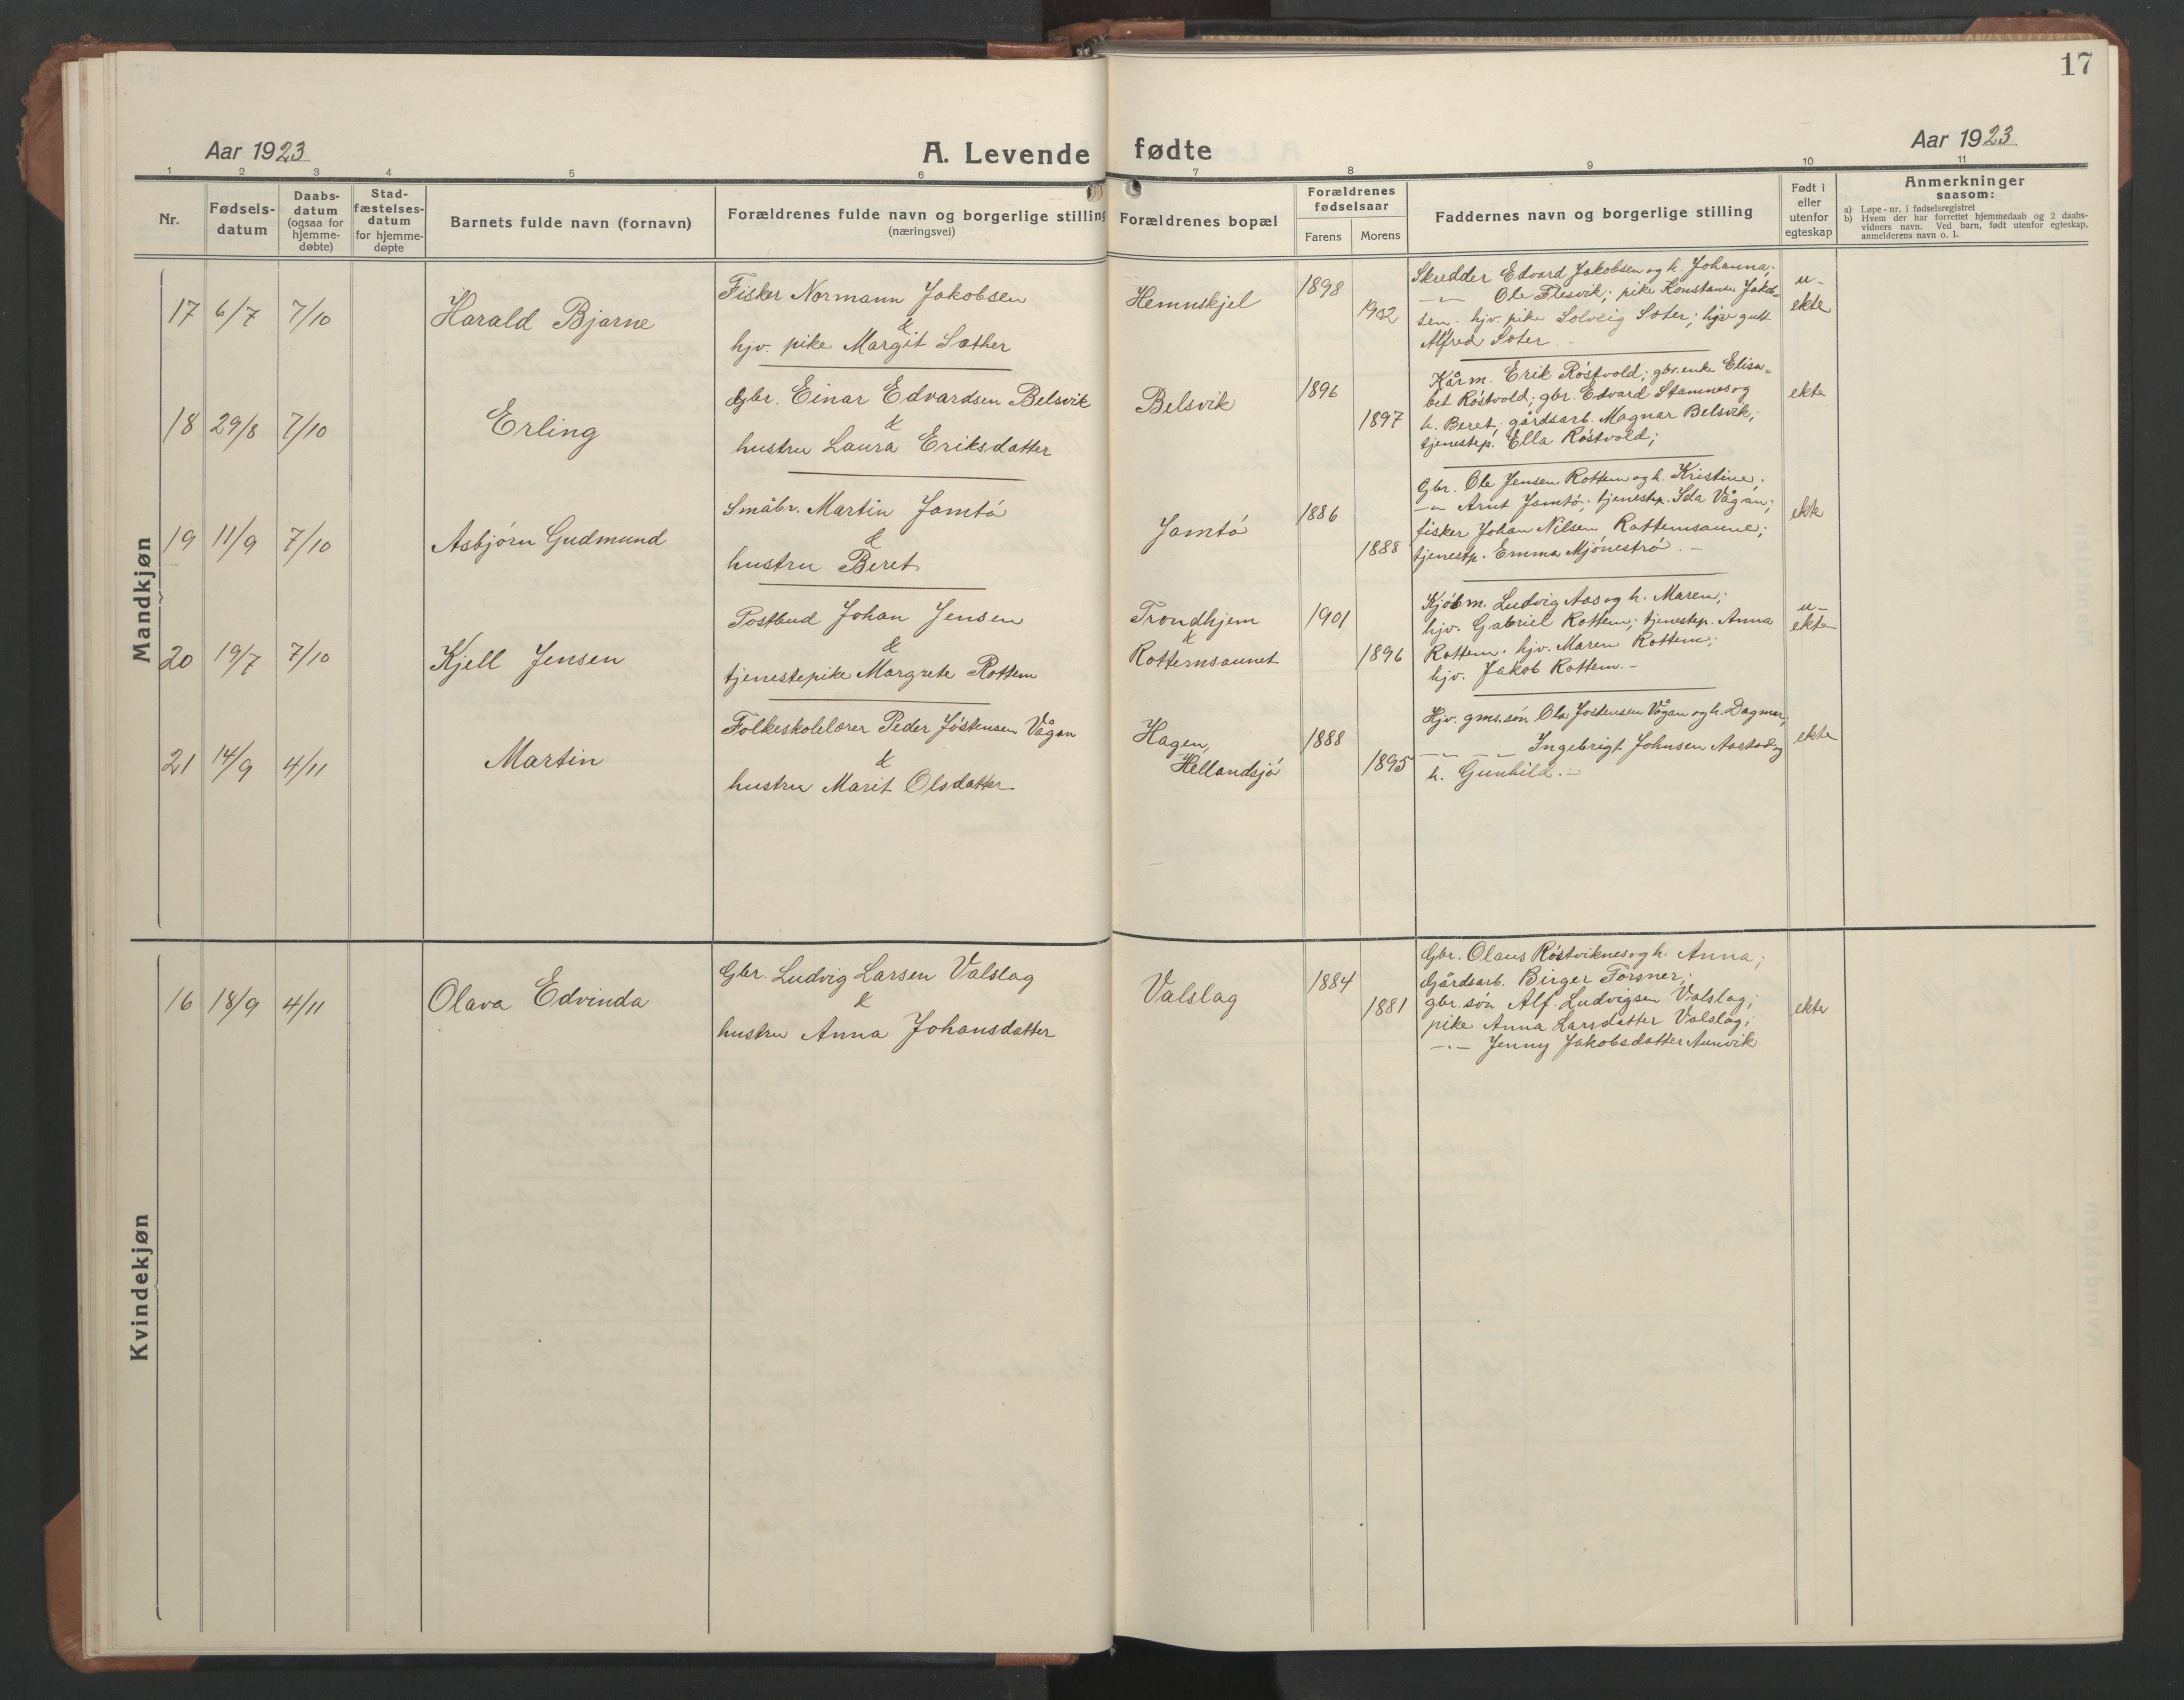 17
Aar 1923
A. Levende fødte
Aar 1923
1 2 3 4 5 6 7 8 9 10 11
Nr.
Fødsels-
datum
Daabs-
datum
(ogsaa for
hjemme-
døbte)
Stad-
fæstelses-
datum
for hjemme-
døpte
Barnets fulde navn (fornavn)
Forældrenes fulde navn og borgerlige stilling
(næringsvei)
Forældrenes bopæl
Forældrenes
fødselsaar
Farens
Morens
Faddernes navn og borgerlige stilling
Født i
eller
utenfor
egteskap
Anmerkninger
saasom:
a) Løpe-nr. i fødselsregistret
b) Hvem der har forrettet hjemmedaab og 2 daabs-
vidners navn. Ved barn, født utenfor egteskap,
anmelderens navn o. l.
Mandkjøn
17 6/7 7/10 Harald Bjarne
Fisker Normann Jakobsen
&
hjv. pike Margit Sæther
Hemnskjel
1898
1902
Skredder Edvard Jakobsen og h. Johanna;
–"– Ole Flesvik; pike Konstanse Jakob-
sen. hjv. pike Solveig Sæter; hjv gutt
Alfred Sæter. –
u-
ekte
18 29/8 7/10 Erling
Gbr. Einar Edvardsen Belsvik
&
hustru Laura Eriksdatter
Belsvik
1896
1897
Kårm. Erik Røstvold; gbr. enke Elisa-
bet Røstvold; gbr. Edvard Stamnes og
h. Beret; gårdsarb. Magnar Belsvik;
tjenestep. Ella Røstvold;
ekte
19 11/9 7/10 Asbjørn Gudmund
Småbr. Martin Jamtø
&
hustru Beret
Jamtø
1886
1888
Gbr. Ole Jensen Rottem og h. Kristine.
–"– Arnt Jamtø; tjenestep. Ida Vågan;
fisker Johan Nilsen Rottemsaune;
tjenestp. Emma Mjønestrø. –
ekte
20 19/7 7/10 Kjell Jensen
Postbud Johan Jensen
&
tjenestepike Margrete Rottem
Trondhjem
&
Rottemsaunet
1901
1896
Kjøbm. Ludvig Aas og h. Maren;
hjv. Gabriel Rottem; tjenestep. Anna
Rottem. hjv. Maren Rottem;
hjv. Jakob Rottem. –
u-
ekte
21 14/9 4/11 Martin
Folkeskolelærer Peder Jøstensen Vågan
&
hustru Marit Olsdatter
Hagen,
Hellandsjø
1888
1895
Hjv. gms.søn Ole Jøstensen Vågan og h. Dagmar;
–"– –"– Ingebrigt Johnsen Aastad og
h. Gunhild. –
ekte
Kvindekjøn
16 18/9 4/11 Olava Edvinda
Gbr. Ludvig Larsen Valslag
&
hustru Anna Johansdatter
Valslag
1884
1881
Gbr. Olaus Røstviknes og h. Anna;
Gårdsarb. Birger Forsner;
gbr. søn Alf. Ludvigsen Valslag;
pike Anna Larsdatter Valslag;
–"– Jenny Jakobsdatter Aunvik
ekte